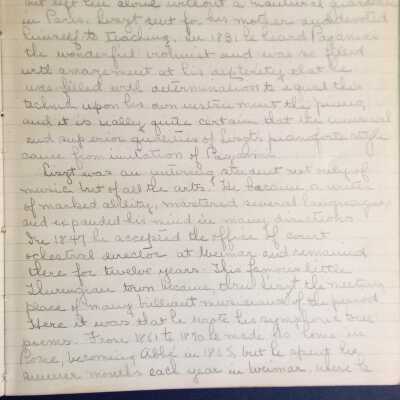 but left him alone without a
in Paris. Liszt sent for his mother and devoted
himself to teaching. In 1831 he heard Paganini
the wonderful violinist and was so filled
with amazement at his dexterity that he
was filled with determination to equal this
technic upon his own instrument the piano,
and it is really quite certain that the unusual
and superior qualities of Liszt's pianoforte style
came from imitation of Paganini.
Liszt was an untiring student not only of
music but of all the arts. He became a writer
of marked ability, mastered several languages,
and expanded his mind in many directions.
In 1847 he accepted the office of court
orchestral director at Weimar and remained
there for twelve years. This famous little
Thuringian town became thru Liszt the meeting
place of many brilliant musicians of the period.
Here it was that he wrote his symphonic tone
poems. From 1861 to 1870 he made his home in
Rome, becoming Abbé in 1865, but he spent his
summer months each year in Weimar, where he